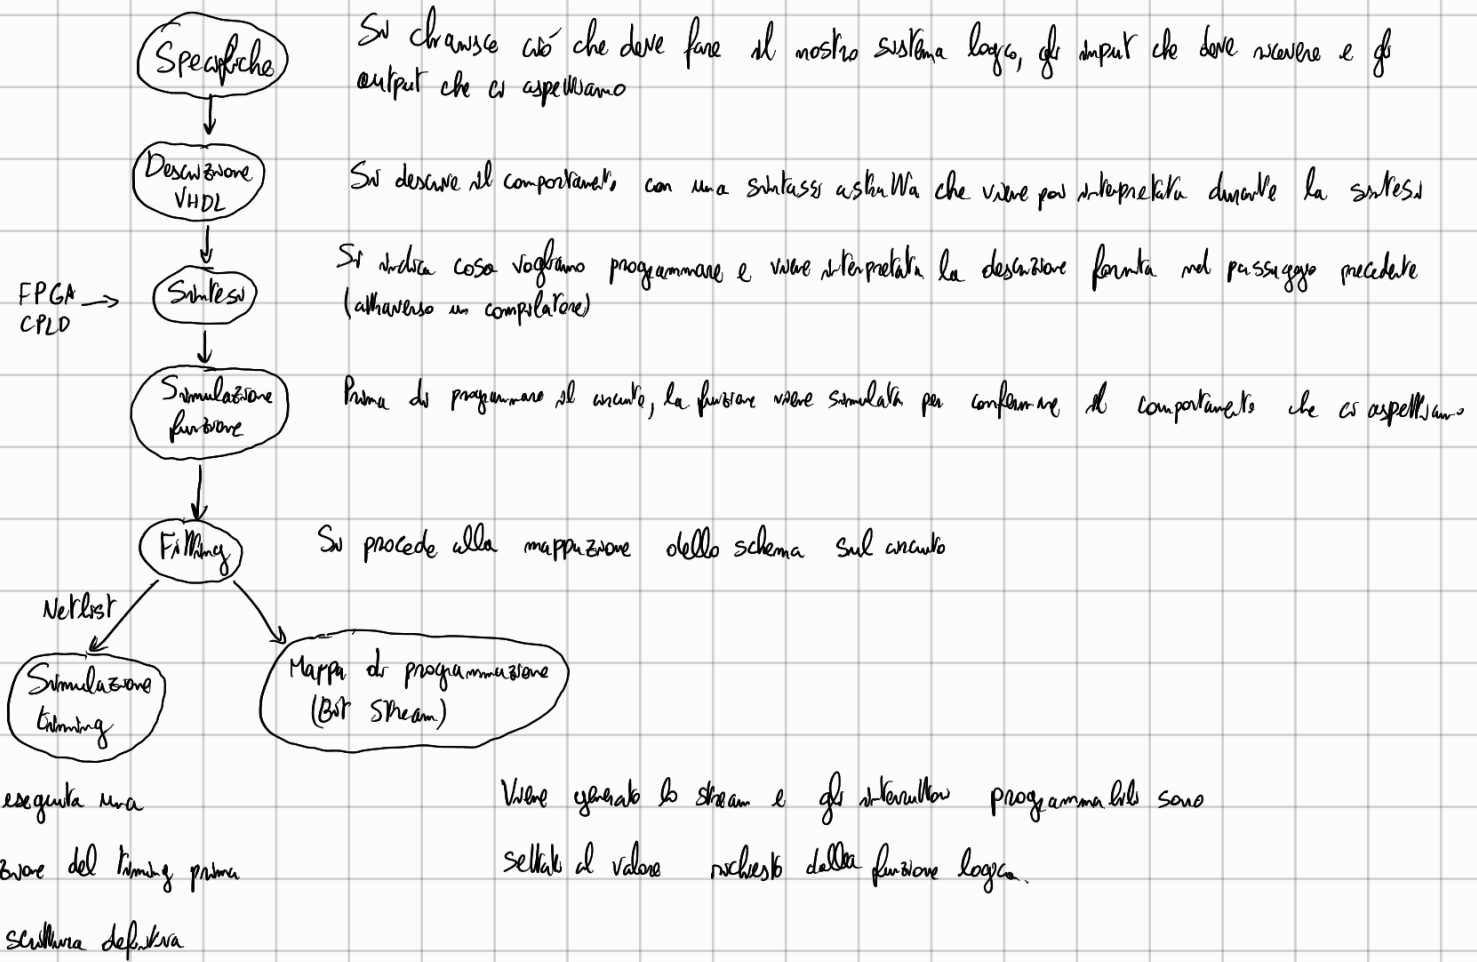 Specifiche
Si chiarisce ciò che deve fare il nostro sistema logico, gli input che deve ricevere e gli
output che ci aspettiamo
Descrizione
VHDL
Si descrive il comportamento con una sintassi astratta che viene poi interpretata durante la sintesi
FPGA
CPLD
Sintesi
Si indica cosa vogliamo programmare e viene interpretata la descrizione fornita nel passaggio precedente
(attraverso un compilatore)
Simulazione
funzione
Prima di programmare il circuito, la funzione viene simulata per confermare il comportamento che ci aspettiamo
Fitting
Si procede alla mappazione dello schema sul circuito
Netlist
Simulazione
timing
Mappa di programmazione
(Bit Stream)
eseguita una
zione del timing prima
scrittura definitiva
Viene generato lo stream e gli interruttori programmabili sono
settati al valore richiesto dalla funzione logica.